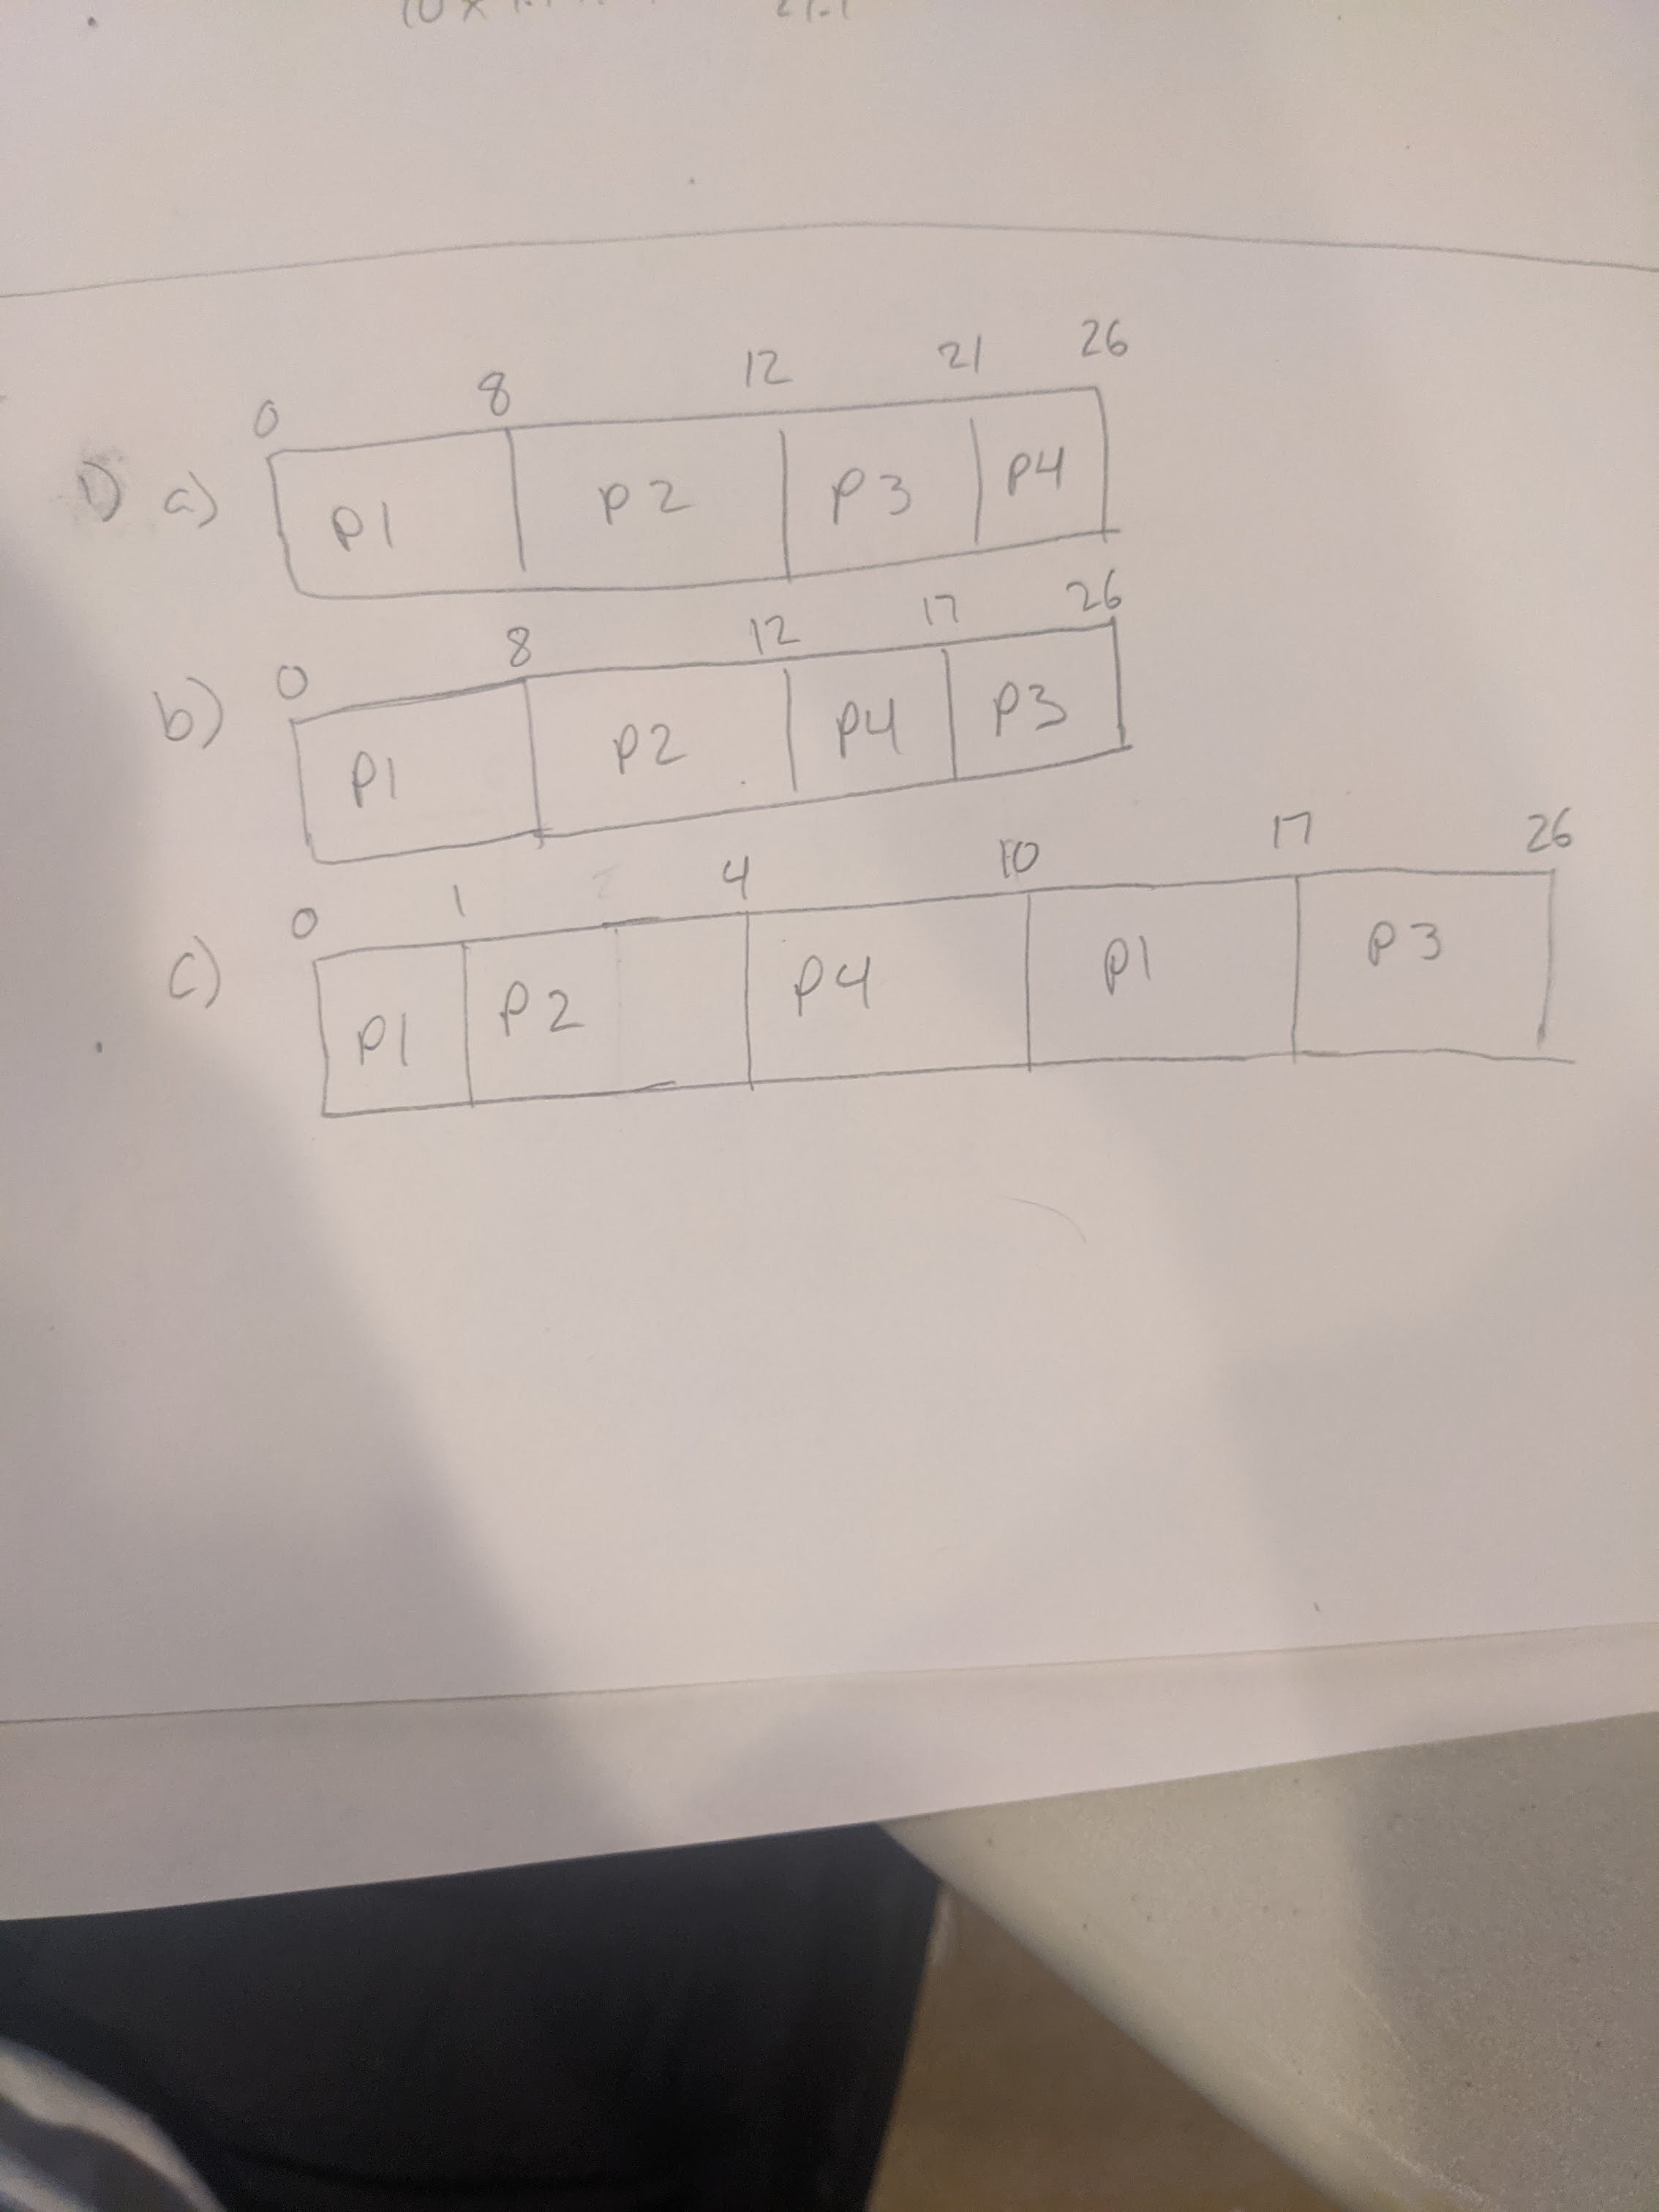 0 8 12 21 26
1) a) P1 P2 P3 P4
0 8 12 17 26
b) P1 P2 P4 P3
0 1 4 10 17 26
c) P1 P2 P4 P1 P3